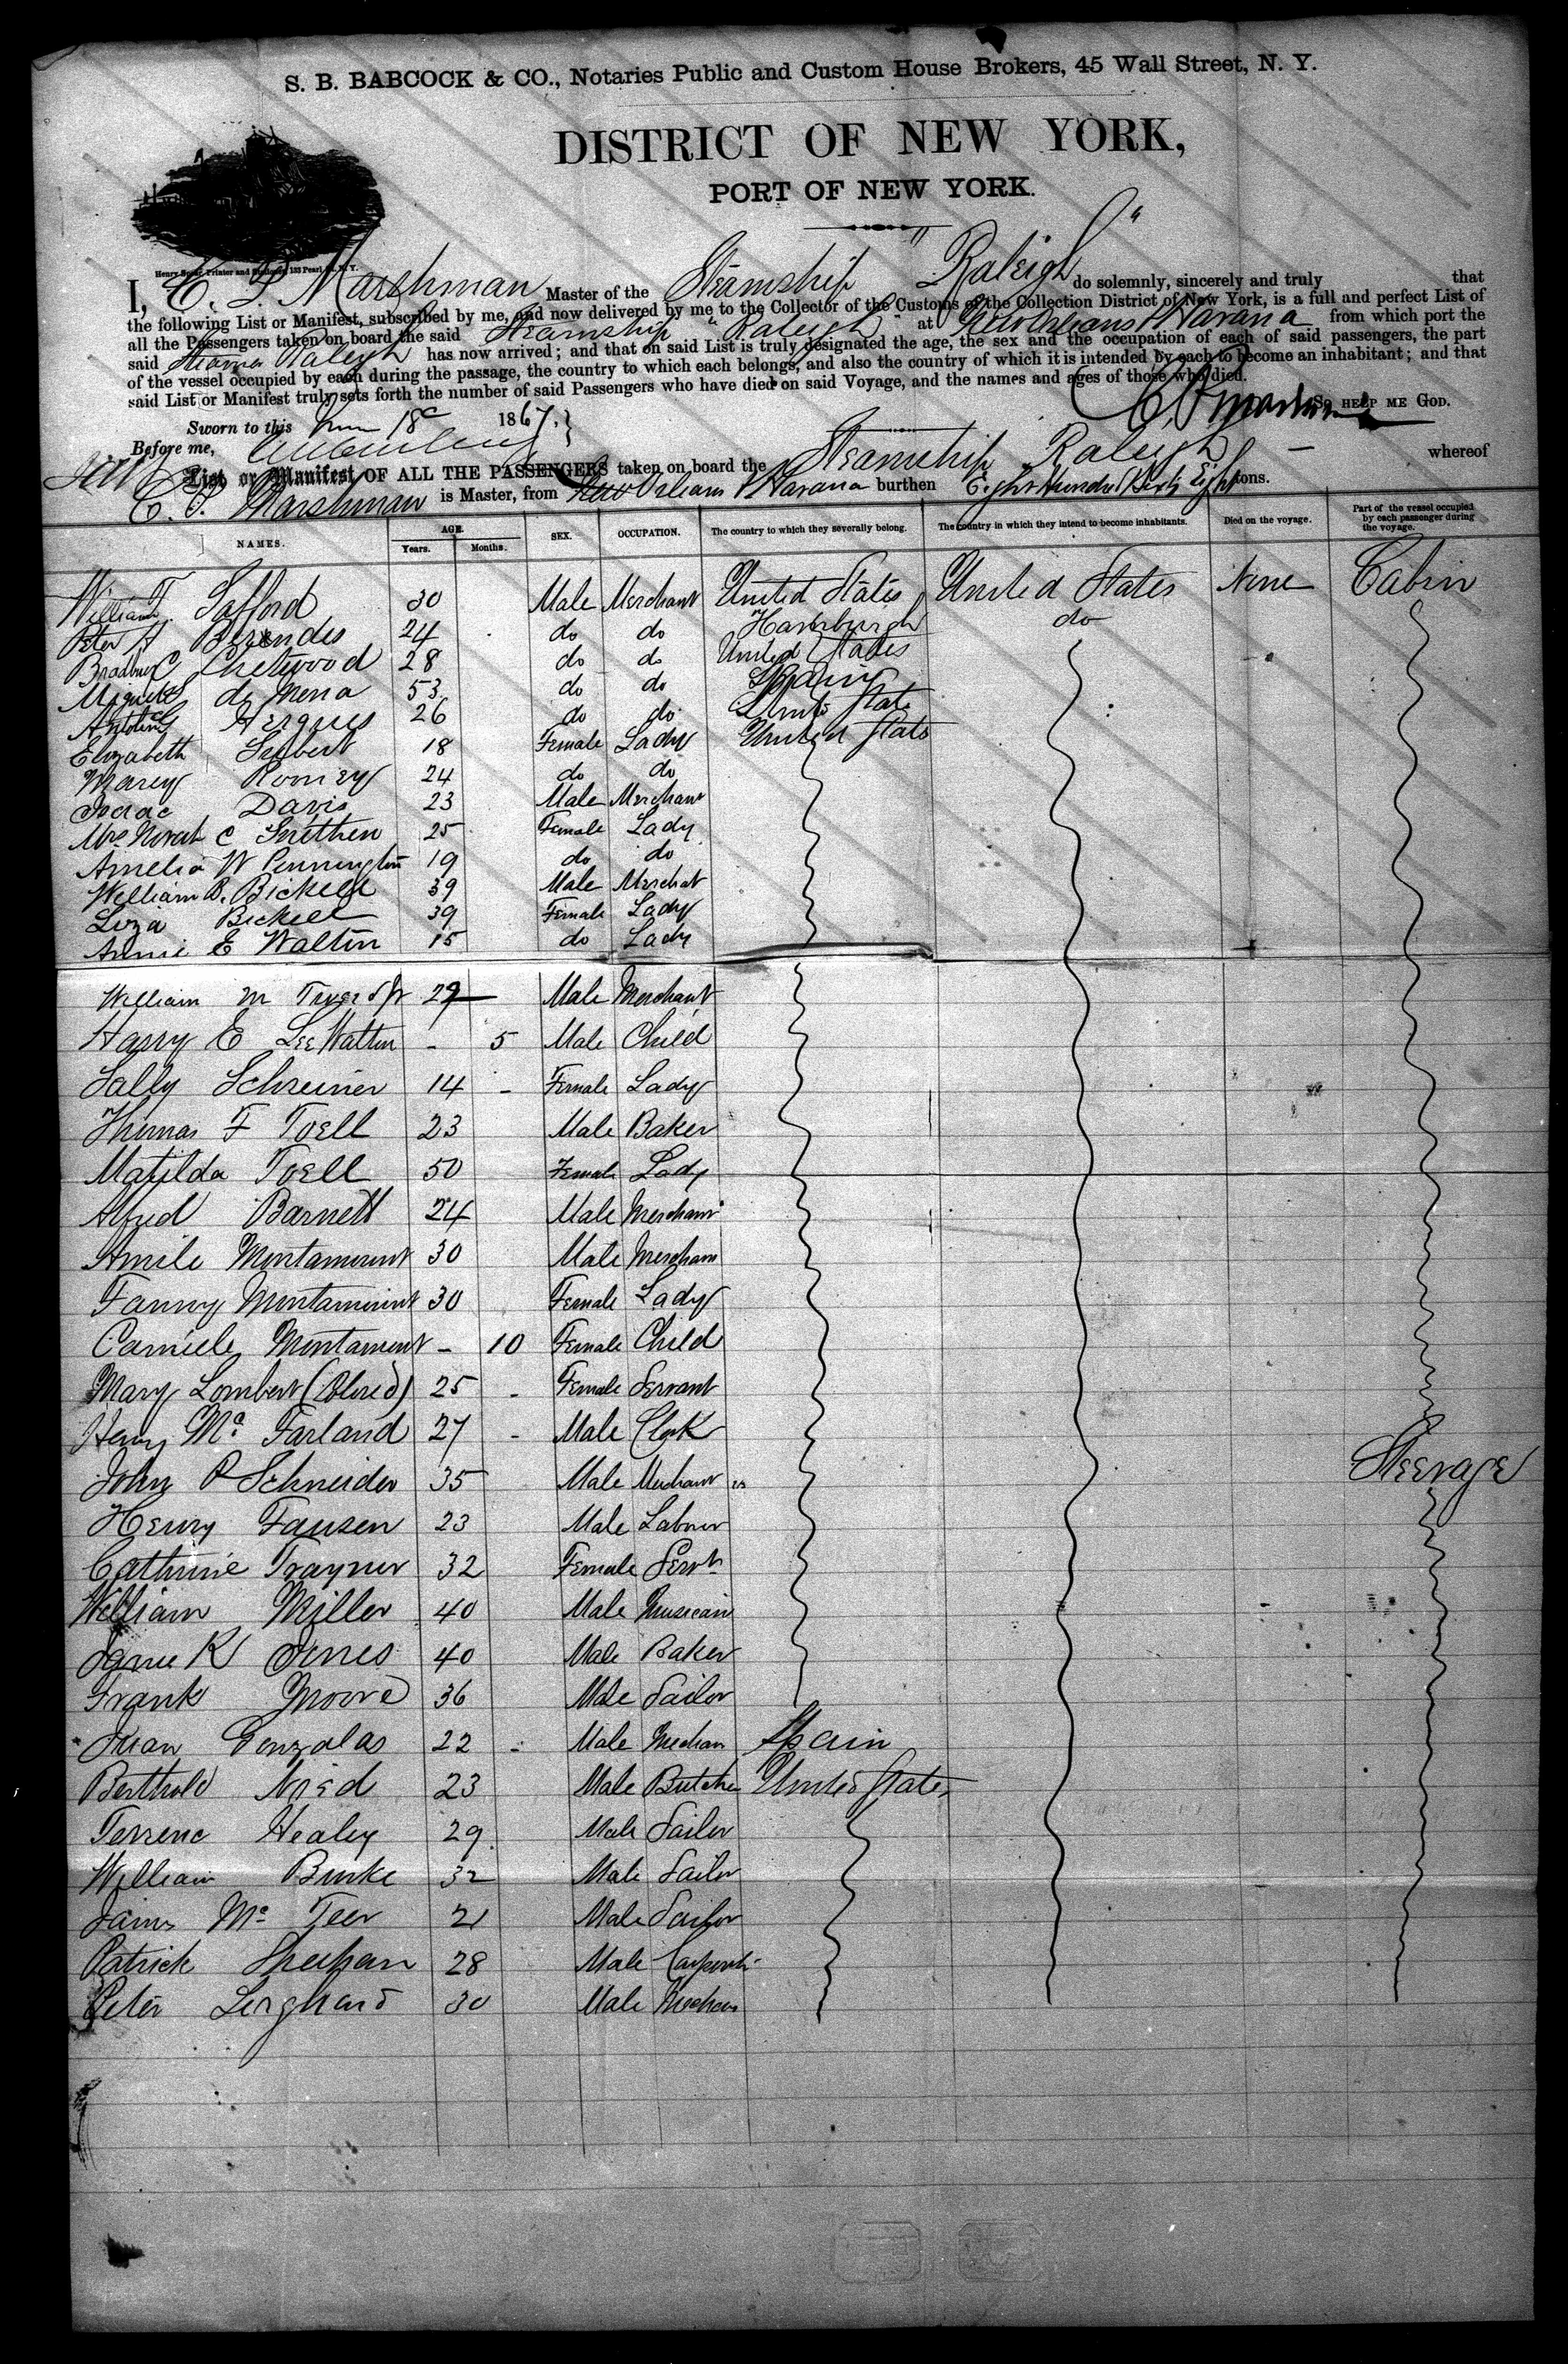 S. B. BABCOCK & CO., Notaries Public and Custom House Brokers, 45 Wall Street, N. Y.
DISTRICT OF NEW YORK,
PORT OF NEW YORK.
Henry Printer and Stationer, 133 Pearl St. N. Y.
I, C. P. Marshman Master of the Steamship "Raleigh" do solemnly, sincerely and truly that
the following List or Manifest, subscribed by me, and now delivered by me to the Collector of the Customs of the Collection District of New York, is a full and perfect List of
all the Passengers taken on board the said Steamship "Raleigh" at New Orleans & Havana from which port the
said Steams Raleigh has now arrived; and that on said List is truly designated the age, the sex and the occupation of each of said passengers, the part
of the vessel occupied by each during the passage, the country to which each belongs, and also the country of which it is intended by each to become an inhabitant; and that
said List or Manifest truly sets forth the number of said Passengers who have died on said Voyage, and the names and ages of those who died.
So HELP ME GOD.
Sworn to this June 18 1867.
Before me,
List or Manifest OF ALL THE PASSENGERS taken on board the Steamship Raleigh – whereof
C. P. Marshman is Master, from New Orleans & Havana burthen Eight Hundred & Sixty Eight tons.
NAMES. AGE. Years. Months. SEX. OCCUPATION. The country to which they severally belong. The country in which they intend to become inhabitants. Died on the voyage. Part of the vessel occupied by each passenger during the voyage.
William T. Safford 30 Male Merchant United States United States None Cabin
Peter A Berendes 24 do do Hamburgh do
Bradbury C Chetwood 28 do do United States
Miguel de Mena 53 do do Spain
Antoine Hergues 26 do do United State
Elizabeth Seubert 18 Female Lady United States
Marey Romey 24 do do
Isaac Davis 23 Male Merchant
Mrs. Norah C Smithen 25 Female Lady
Amelia W Pennington 19 do do
William B. Bickell 39 Male Merchat
Loza Bickell 39 Female Lady
Annie E Walton 15 do Lady
William M Tweed Jr 29 Male Merchant
Harry E Lee Watton - 5 Male Child
Sally Schreiner 14 - Female Lady
Thomas F Toell 23 Male Baker
Matilda Toell 50 Female Lady
Alfred Barnett 24 Male Merchant
Amile Montamount 30 Male Mercham
Fanny Montamount 30 Female Lady
Camiele Montamont - 10 Female Child
Mary Lombert (Colored) 25 - Female Servant
Henry Mc Farland 27 - Male Clerk
John P Schneider 35 Male Merchant Steerage
Henry Fausen 23 Male Laborer
Cathrine Traynor 32 Female Servt
William Miller 40 Male Musican
Jame K Jenes 40 Male Baker
Frank Moore 36 Male Sailor
Juan Gonzalas 22 - Male Mechan Spain
Berthold Nied 23 Male Butcher United States
Terrenc Healey 29 Male Sailor
William Burke 32 Male Sailor
James Mc Teer 21 Male Sailor
Patrick Sheehan 28 Male Carpentr
Peter Lerghard 30 Male Mechan